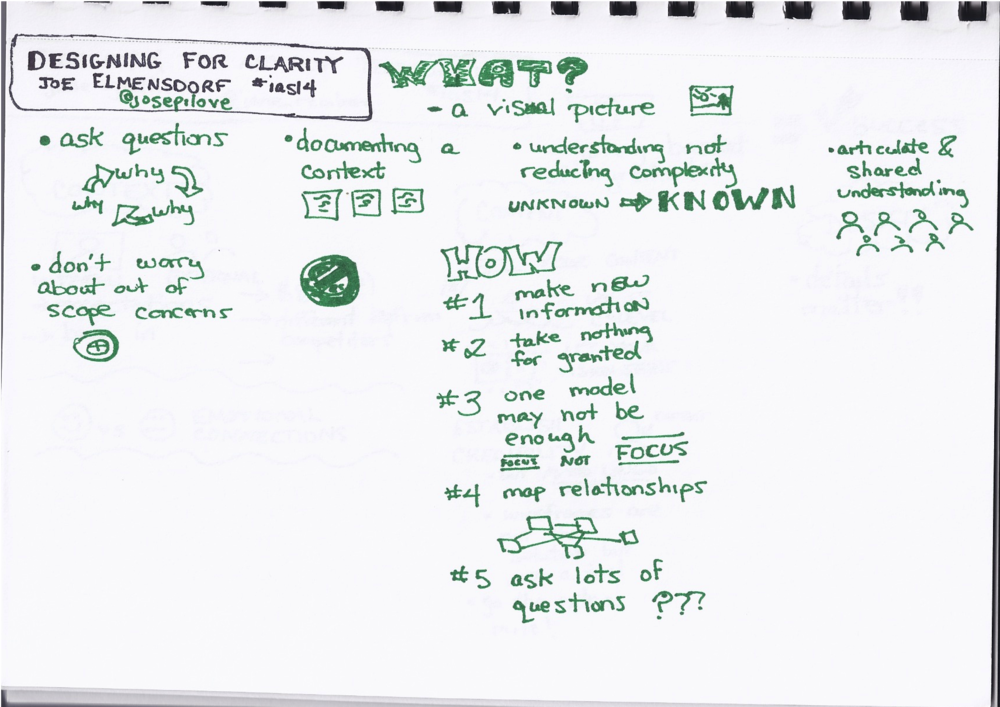 DESIGNING FOR CLARITY
JOE ELMENSDORF #ias14
@josepilove
WHAT?
- a visual picture
• ask questions
why
why
why
• documenting a
context
• understanding not
reducing complexity
UNKNOWN ⇨ KNOWN
• articulate &
shared
understanding
• don't worry
about out of
scope concerns
HOW
#1 make new
information
#2 take nothing
for granted
#3 one model
may not be
enough
FOCUS NOT FOCUS
#4 map relationships
#5 ask lots of
questions ???